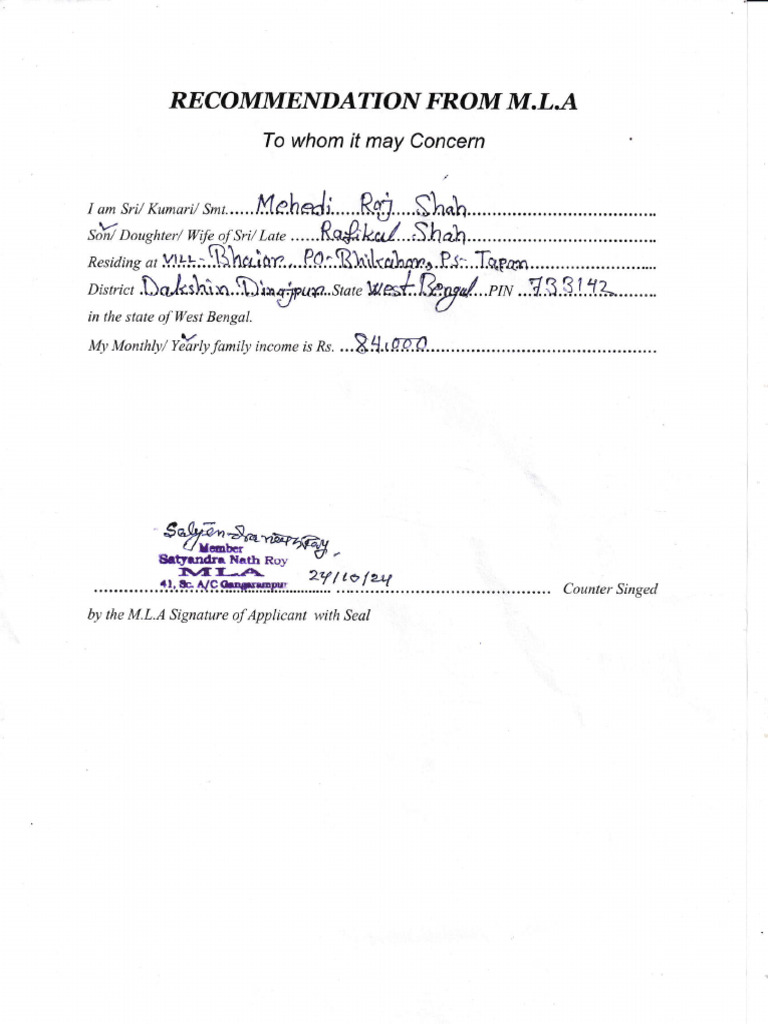 RECOMMENDATION FROM M.L.A
To whom it may Concern
I am Sri/ Kumari/ Smt......Mehedi Raj Shah..........
Son/ Doughter/ Wife of Sri/ Late ......Rafikul Shah..........
Residing at .VILL- Bhaior, PO- Bhikahar, Ps- Tapan..........
District .Dakshin Dinajpur State West Bengal ...PIN ...733142..........
in the state of West Bengal.
My Monthly/ Yearly family income is Rs. ...84,000..........
Satyendra nath Roy
Member
Satyandra Nath Roy
MLA 24/10/24
41, Sc. A/C Gangarampur
.......... Counter Singed
by the M.L.A Signature of Applicant with Seal